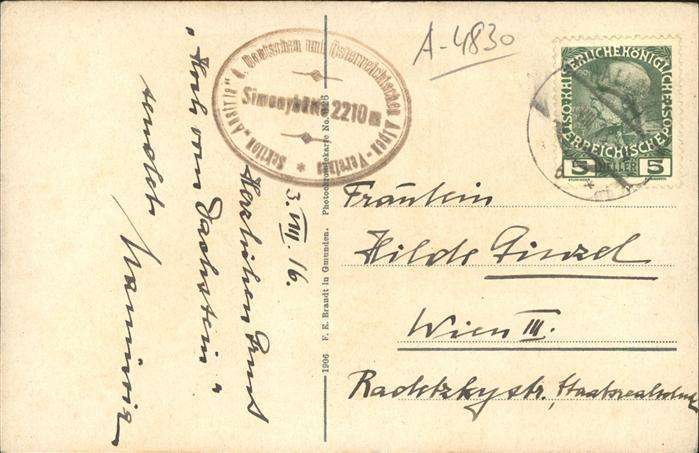 A-4830
Sektion „Austria“ d. Deutschen und Österreichischen Alpen-Vereines *
Simonyhütte 2210 m
KAISERLICHE KÖNIGLICHE
ÖSTERREICHISCHE POST
5 HELLER 5
3. VIII. 16.
Herzlichen Gruß
„Hoch vom Dachstein“
sendet
1906 F. E. Brandt in Gmunden. Photochromiekarte No.
Fräulein
Hilde Ginzel
Wien III.
Radetzkystr., Staatsrealschule